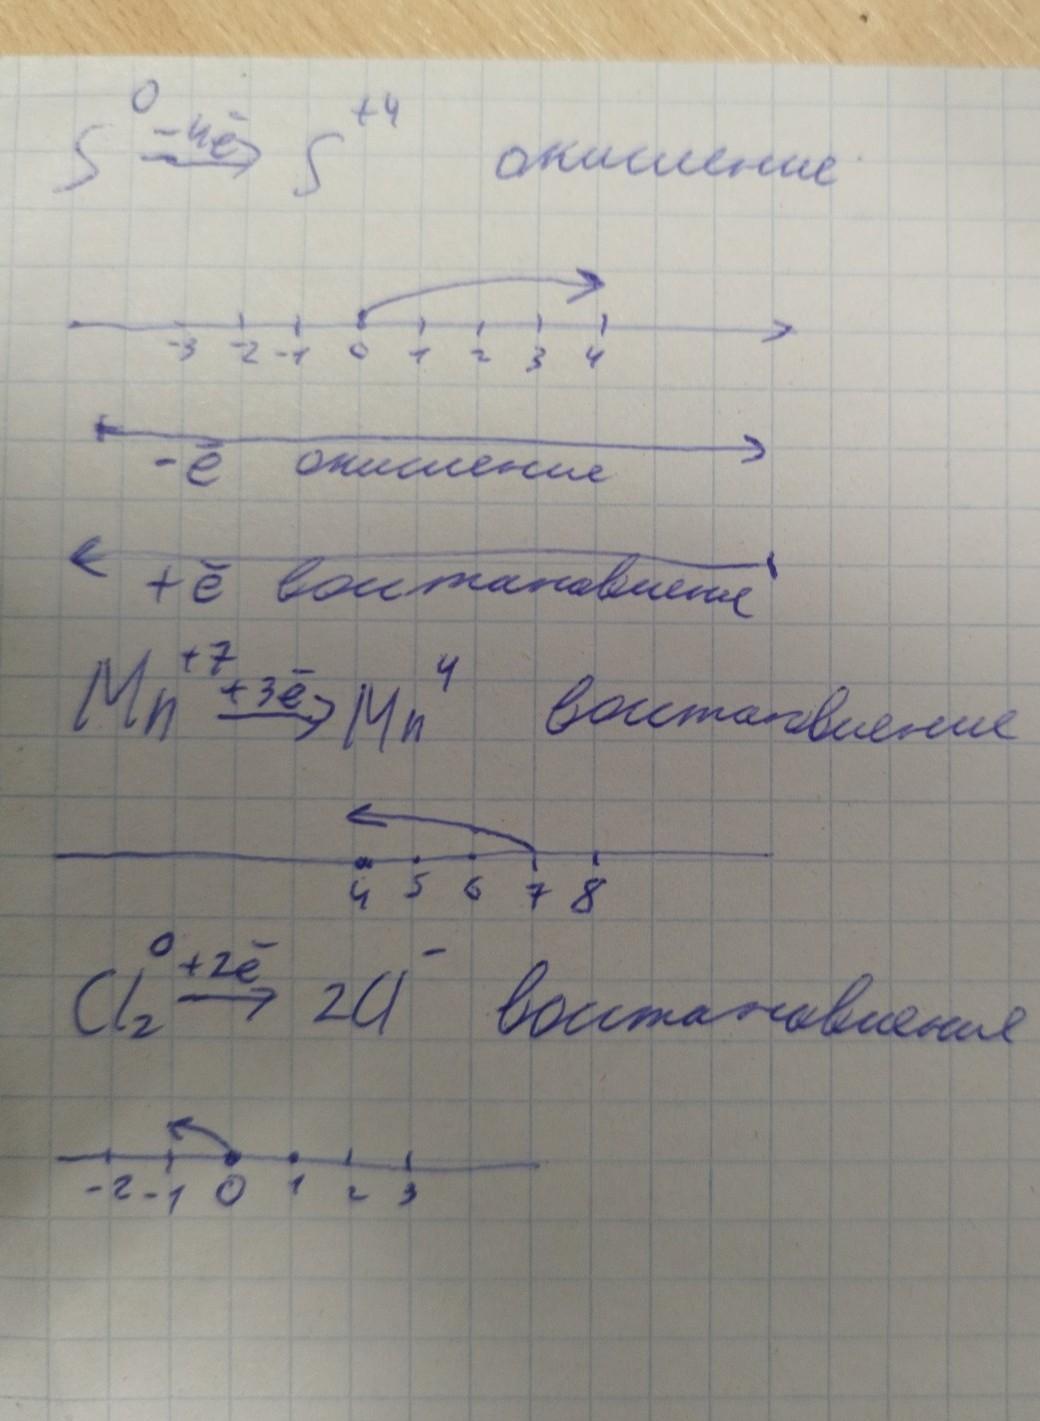 S⁰ -4ē→ S⁺⁴ окисление
-3 -2 -1 0 1 2 3 4
-ē окисление
+ē восстановление
Mn⁺⁷ +3ē→ Mn⁴ восстановление
4 5 6 7 8
Cl₂⁰ +2ē→ 2Cl⁻ восстановление
-2 -1 0 1 2 3